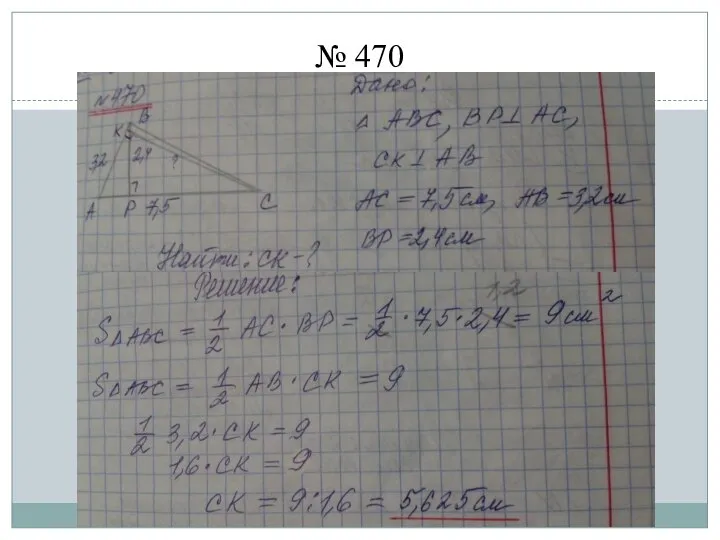 № 470
№470
Дано:
B
K
△ ABC, BP⊥ AC,
3,2
2,4
?
CK⊥ AB
A
P
7,5
C
AC = 7,5 см, AB = 3,2 см
BP = 2,4 см
Найти: CK - ?
Решение:
1,2
S△ABC = 1/2 AC · BP = 1/2 · 7,5 · 2,4 = 9 см²
S△ABC = 1/2 AB · CK = 9
1/2 3,2 · CK = 9
1,6 · CK = 9
CK = 9 : 1,6 = 5,625 см